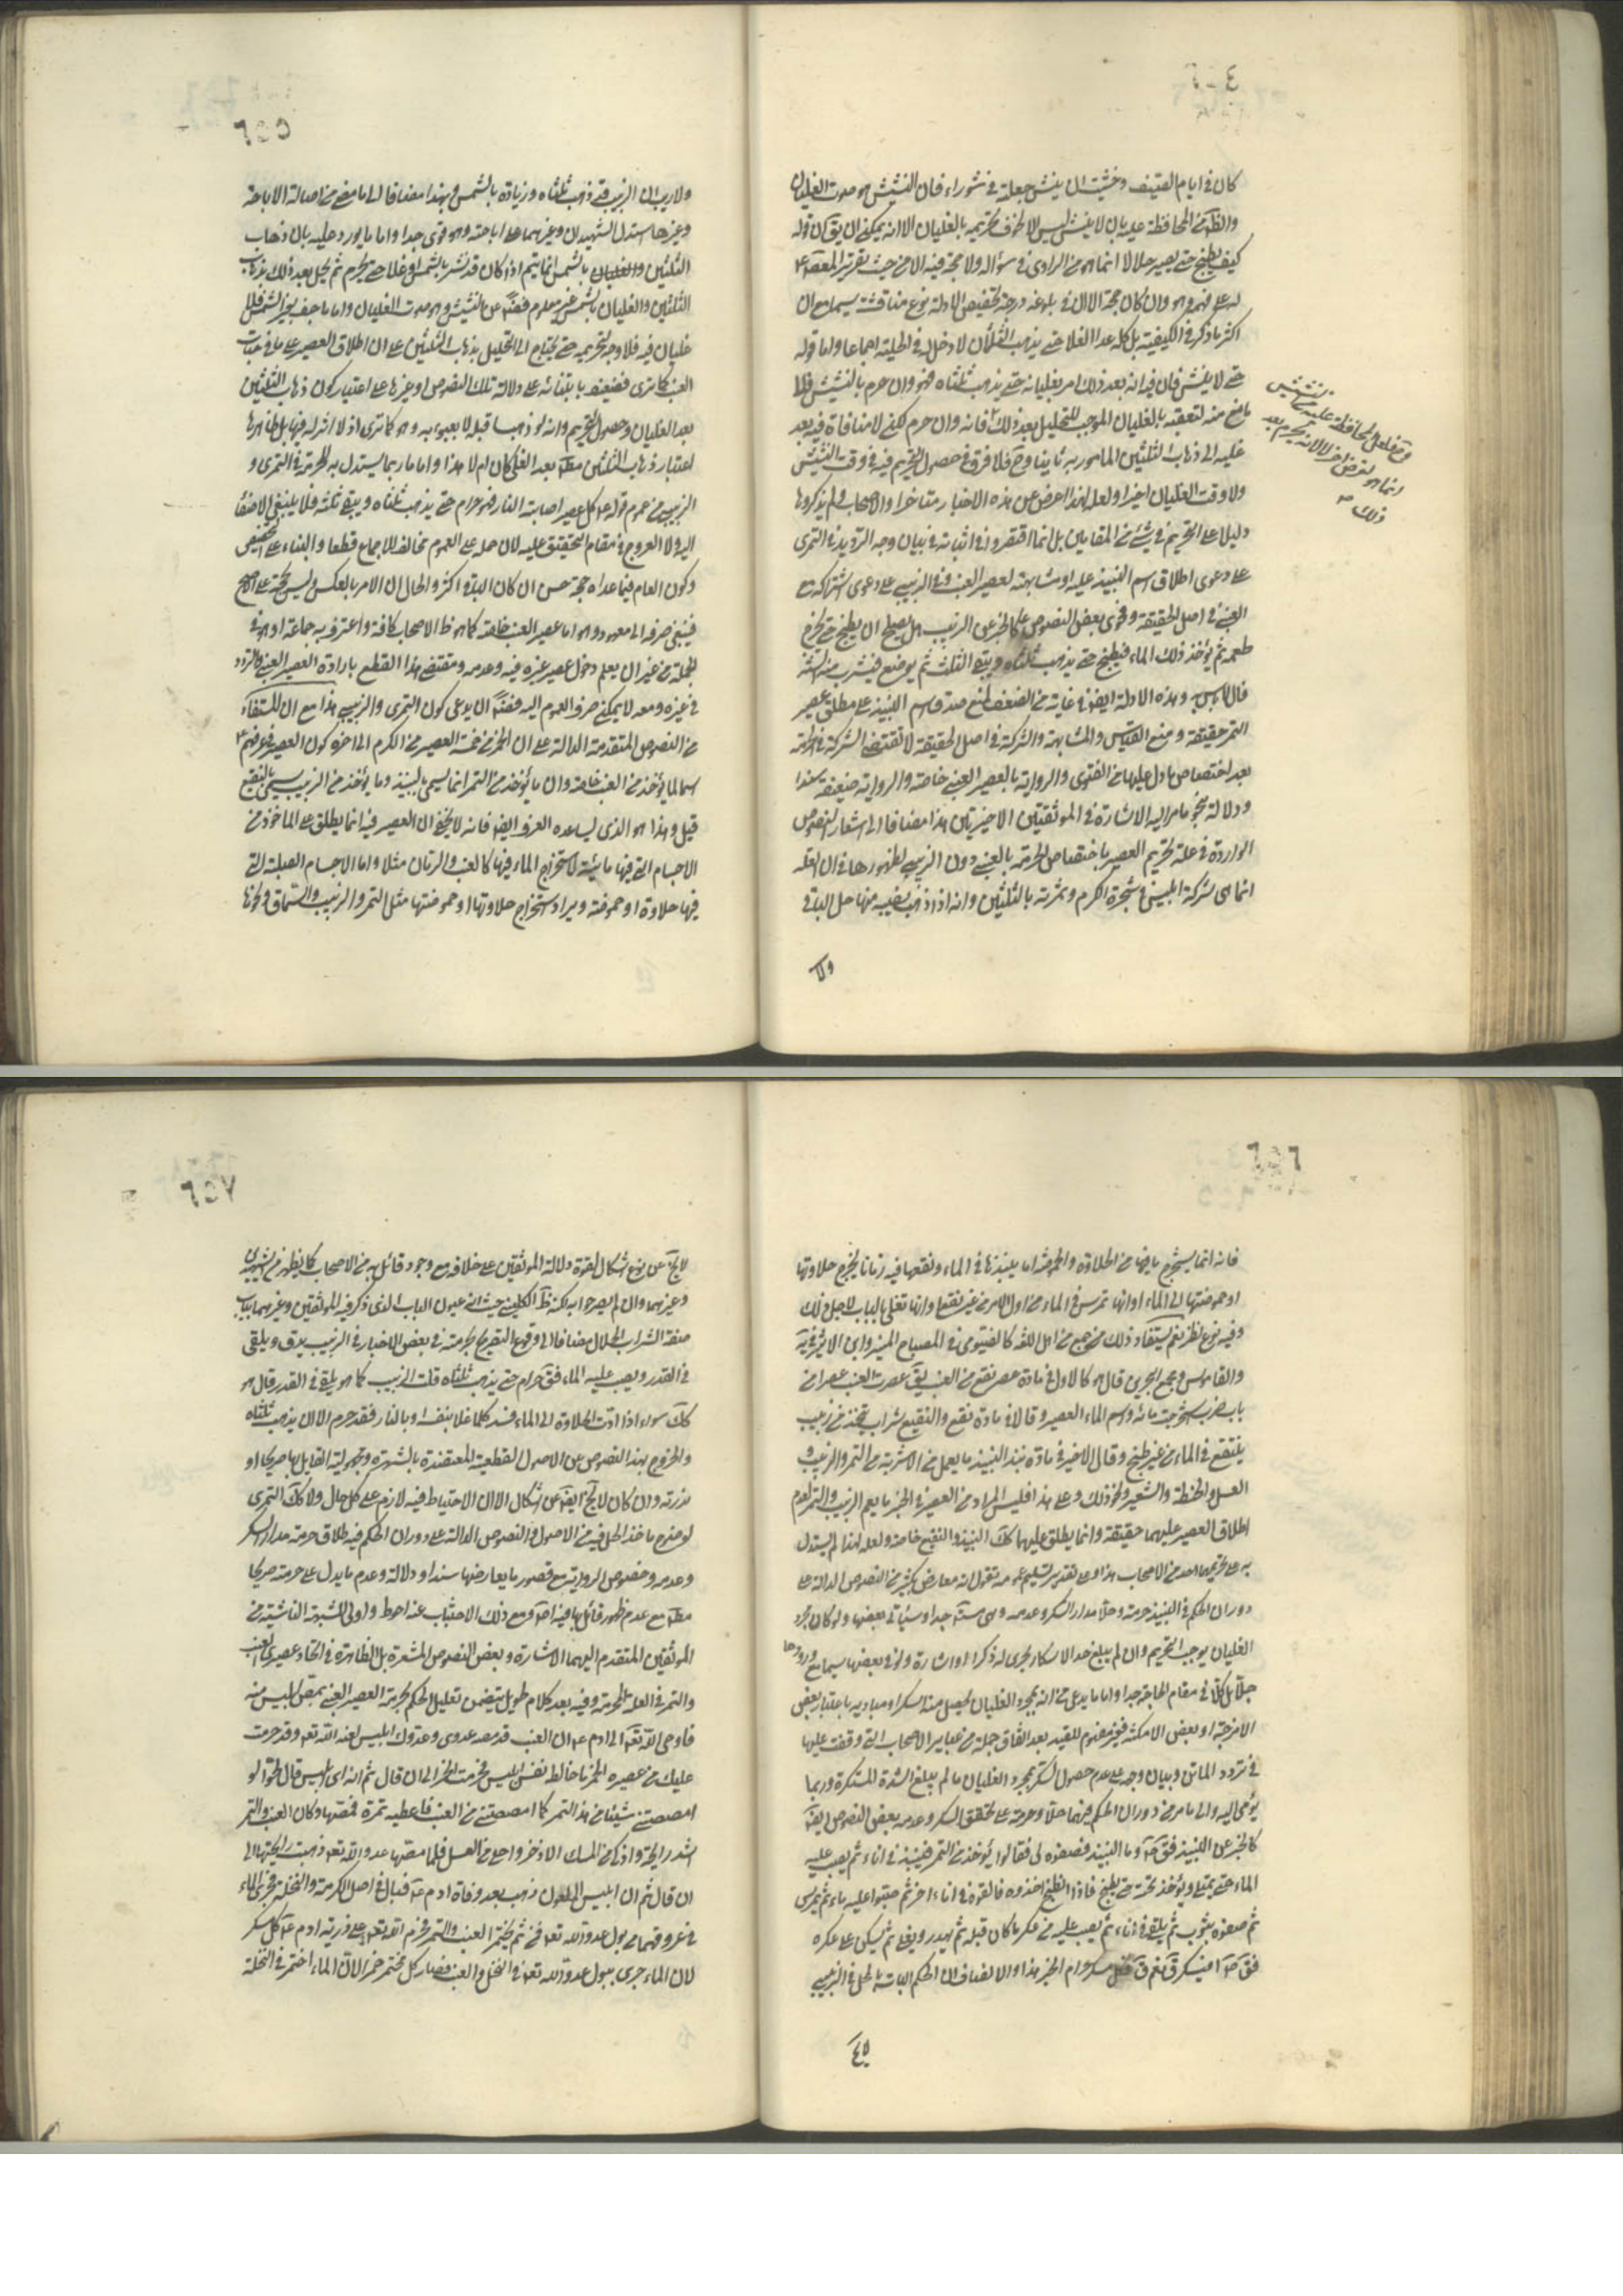 كان في ايام الصيف وخشيت ان ينش جعلته في تنور اه فان النشيش هو صوت الغليان
والظ ان المحافظة عليه بان لا ينش ليس لا لخوف تحريمه بالغليان الا انه يمكن ان يق ان قوله
كيف يطبخ حتى يصير حلالا انما هو من الراوي في سؤاله ولا حجة فيه الا من حيث تقرير المعصوم ع
له على فهمه وهو وان كان حجة الا ان في بلوغه درجة تخصيص الادلة نوع مناقشة سيما مع ان
اكثر ما ذكر في الكيفية بل كله عدا الغلا حتى يذهب الثلثان لا دخل له في الحلية اجماعا واما قوله
حتى لا ينش فان فيه انه بعد ذلك امر بغليانه حتى يذهب ثلثاه فهو وان حرم بالنشيش فلا
مانع منه لتعقبه بالغليان الموجب للتحليل بعد ذلك فانه وان حرم لكن لا منافاة فيه بعد
غليه الى ذهاب الثلثين المامور به ثانيا وح فلا فرق في حصول التحريم فيه في وقت النشيش
ولا وقت الغليان اخيرا ولعله لهذا اعرض عن هذه الاخبار متاخرا والاصحاب ولم يذكروها
دليلا على التحريم في شئ من المقامين بل انما اقتصروا في اثباته في بيان وجه التردد في التمري
على دعوى اطلاق اسم النبيذ عليه او مشابهته لعصير العنب وفي الزبيبي على دعوى اشتراكه مع
العنبي في اصل الحقيقة وفحوى بعض النصوص كالخبر عن الزبيب هل يصلح ان يطبخ حتى يخرج
طعمه ثم يؤخذ ذلك الماء فيطبخ حتى يذهب ثلثاه ويبقى الثلث ثم يوضع فيشرب منه السنة
قال لا باس به وهذه الادلة ايضا في غاية من الضعف لمنع صدق اسم النبيذ على مطلق عصير
التمر حقيقة ومنع القياس والمشابهة والشركة في اصل الحقيقة لا تقتضي الشركة في الحرمة
بعد اختصاص ما دل عليها من الفتوى والرواية بالعصير العنبي خاصة والرواية ضعيفة سندا
ودلالة بنحو ما مر اليه الاشارة في الموثقتين الاخيرتين هذا مضافا الى اشعار النصوص
الواردة في علة تحريم العصير باختصاص الحرمة بالعنبي دون الزبيبي لظهورها في ان العلة
انما هى شركة ابليس في شجرة الكرم وثمرته بالثلثين وانه اذا ذهب نصيبه منها حل الباقي
ولا
وح فلعل المحافظة عليه من النشيش
انما هو لغرض اخر لا لانه يحرم بعد
ذلك
٦٥٥
ولا ريب ان الزبيب قد ذهب ثلثاه وزيادة بالشمس وبهذا مضافا الى ما مضى من اصالة الاباحة
وغيرها استدل الشهيدان وغيرهما على اباحته وهو قوى جدا واما ما يورد عليه بان ذهاب
الثلثين والغليان بالشمس انما يتم اذا كان قد نش بالشمس او غلا حتى يحرم ثم يحل بعد ذلك بذهاب
الثلثين والغليان بالشمس غير معلوم فضلا عن النشيش وهو صوت الغليان واما ما جف بغير الشمس فلا
غليان فيه فلا وجه لتحريمه حتى يحتاج الى التحليل بذهاب الثلثين على ان اطلاق العصير على ما في حبات
العنب كما ترى فضعيف بابتنائه على دلالة تلك النصوص او غيرها على اعتبار كون ذهاب الثلثين
بعد الغليان وحصول التحريم وانه لو ذهبا قبله لا يعبؤ به وهو كما ترى اذ لا اثر له فيها بل ظاهرها
اعتبار ذهاب الثلثين مطلقا بعد الغلي كان ام لا هذا واما ما ربما يستدل به للحرمة في التمري و
الزبيبي من عموم قوله ع كل عصير اصابته النار فهو حرام حتى يذهب ثلثاه ويبقى ثلثه فلا ينبغي الاصغاء
اليه ولا العروج في مقام التحقيق عليه لان حمله على العموم مخالف للاجماع قطعا والبناء على التخصيص
وكون العام فيما عداه حجة حسن ان كان الباقي اكثر والحال ان الامر بالعكس وليس بحجة على الاصح
فينبغي صرفه الى معهود وهو اما عصير العنب خاصة كما هو ظ الاصحاب كافة واعترف به جماعة او هو في
الجملة من غير ان يعلم دخول عصير غيره فيه وعدمه ومقتضى هذا القطع بارادة العصير العنبي والتردد
في غيره ومعه لا يمكن صرف العموم اليه فضلا ان يدعى كون التمري والزبيبي هذا مع ان المستفاد
من النصوص المتقدمة الدالة على ان الخمر من خمسة العصير من الكرم الى اخره كون العصير في عرفهم ع
اسما لما يؤخذ من العنب خاصة وان ما يؤخذ من التمر انما يسمى بالنبيذ وما يؤخذ من الزبيب يسمى بالنقيع
قيل وهذا هو الذي يساعده العرف ايضا فانه لا يخفى ان العصير فيه انما يطلق على الماخوذ من
الاجسام التي فيها مائية لاستخراج الماء فيها كالعنب والرمان مثلا واما الاجسام الصلبة التي
فيها حلاوة او حموضة ويراد استخراج حلاوتها او حموضتها مثل التمر والزبيب والسماق ونحوها
٦٥٦
فانه انما يستخرج ما فيها من الحلاوة والحموضة اما بنبذها في الماء ونقعها فيه زمانا يخرج حلاوتها
او حموضتها الى الماء او انها تمرس في الماء من اول الامر من غير نقع او انها تغلى بالباب لاجل ذلك
وفيه نوع نظر نعم يستفاد ذلك من جمع من اهل اللغة كالفيومي في المصباح المنير وابن الاثير في يه
والقاموس ومجمع البحرين قال هو كالاول في مادة عصر نقع من العنب يق عصرت العنب عصرا من
باب ضرب استخرجت مائه واسم الماء العصير وقالا في مادة نقع والنقيع شراب يتخذ من زبيب
ينتقع في الماء من غير طبخ وقال الاخير في مادة نبذ النبيذ ما يعمل من الاشربة من التمر والزبيب و
العسل والحنطة والشعير ونحو ذلك وعلى هذا فليس المراد من العصير في الخبر ما يعم الزبيب والتمر لعدم
اطلاق العصير عليهما حقيقة وانما يطلق عليهما كك النبيذ والنقيع خاصة ولعله لهذا لم يستدل
به على تحريمهما احد من الاصحاب هذا وعلى تقدير تسليم عمومه نقول انه معارض بكثير من النصوص الدالة على
دوران الحكم في النبيذ حرمة وحلا مدار السكر وعدمه وهى مستفيضة جدا وسيأتي بعضها ولو كان مجرد
الغليان يوجب التحريم وان لم يبلغ حد الاسكار لجرى له ذكر او اشارة ولو في بعضها سيما مع ورودها
جلا بل كلا في مقام الحاجة جدا واما ما يدعى من انه بمجرد الغليان يحصل منه السكر او مباديه باعتبار بعض
الامزجة او بعض الامكنة فغير مفهوم للعبد بعد اتفاق جملة من عبائر الاصحاب التي وقفت عليها
في تردد الماتن وبيان وجهه على عدم حصول السكر بمجرد الغليان ما لم يبلغ الشدة المسكرة وربما
يؤمى اليه والى ما مر من دوران الحكم فيهما حلا وحرمة على تحقق السكر وعدمه بعض النصوص ايضا
كالخبر عن النبيذ فق ص وما النبيذ فصفوه لي فقالوا يؤخذ من التمر فينبذ في اناء ثم يصب عليه
الماء حتى يمتلي ويوقد تحته حتى يطبخ فاذا انطبخ اخذوه فالقوه في اناء اخر ثم صبوا عليه ماء ثم يمرس
ثم صفوه بثوب ثم يلقى في اناء ثم يصب عليه من عكر ما كان قبله ثم يهدر ويغلي ثم يسكن على عكره
فق ص افيسكر ق نعم ق فكل مسكر حرام الخبر هذا والانصاف ان الحكم البات بالحل في الزبيبي
لا يخ
٦٥٧
لا يخ عن نوع اشكال لقوة دلالة الموثقين على خلافه مع وجود قائل به من الاصحاب كما يظهر من الشهيدين
وغيرهما وان لم يصرحوا به لكنه ظ الكليني حيث انه عنون الباب الذي ذكر فيه الموثقين وغيرهما بباب
صفة الشراب الحلال مضافا الى وقوع التصريح بحرمته في بعض الاخبار في الزبيب يدق ويلقى
في القدر ويصب عليه الماء فق حرام حتى يذهب ثلثاه قلت الزبيب كما هو يلقى في القدر قال هو
كك سواء اذا ادت الحلاوة الى الماء فسد كلما غلا بنفسه او بالنار فقد حرم الا ان يذهب ثلثاه
والخروج بهذا النصوص عن الاصول القطعية المعتضدة بالشهرة ومجهولية القايل بها صريحا او
ندرته وان كان لا يخ ايضا عن اشكال الا ان الاحتياط فيه لازم على كل حال ولا كك التمري
لوضوح ماخذ الحل فيه من الاصول والنصوص الدالة على دوران الحكم فيه طلاق حرمة مدار السكر
وعدمه وخصوص الرواية مع قصور ما يعارضها سندا ودلالة وعدم ما يدل على حرمته صريحا
مطلقا مع عدم ظهور قائل بها فيه اصلا ومع ذلك الاجتناب عنه احوط واولى للشبهة الناشئة من
الموثقين المتقدم اليهما الاشارة وبعض النصوص المشعرة بل الظاهرة في اتحاد عصيري العنب
والتمر في العلة المحرمة وفيه بعد كلام طويل يتضمن تعليل الحكم بحرمة العصير العنبي بمص ابليس منه
فاوحى الله تع الى ادم ع ان العنب قد مصه عدوي وعدوك ابليس لعنه الله تع وقد حرمت
عليك من عصيره الخمر ما خالطه نفس ابليس فحرمت الخمر الى ان قال ثم انه اي ابليس قال لحوا لو
امصصتني شيئا من هذا التمر كما امصصتني من العنب فاعطته تمرة فمصها وكان العنب والتمر
اشد رايحة واذكى من المسك الاذفر واحلى من العسل فلما مصها عدو الله تع ذهبت رايحتهما الى
ان قال ثم ان ابليس الملعون ذهب بعد وفاة ادم ع فبال في اصل الكرمة والنخلة فجرى الماء
في عروقهما من بول عدو الله تع فمن ثم يختمر العنب والتمر فحرم الله تع على ذرية ادم ع كل مسكر
لان الماء جرى ببول عدو الله تع في النخل والعنب فصار كل مختمر خمرا لان الماء اختمر في النخلة